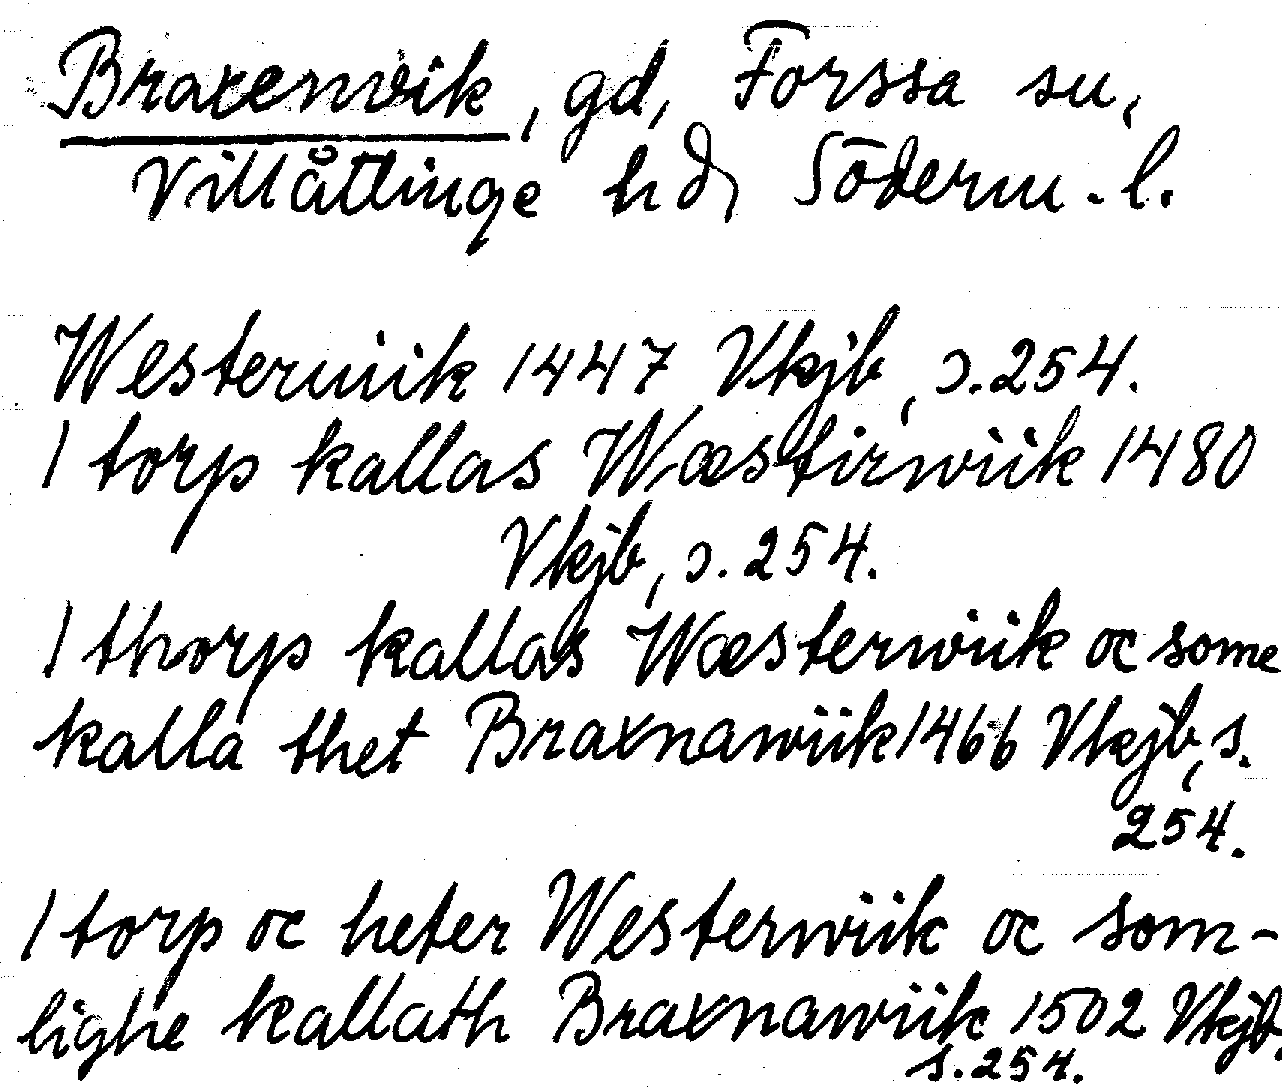 Braxenvik, gd, Forssa sn,
Villåttinge hd, Söderm.l.
Westerwiik 1447 Vkjb, s.254.
1 torp kallas Wæstirwiik 1480
Vkjb, s.254.
1 thorp kallas Wæsterwiik oc some
kalla thet Braxnawiik 1466 Vkjb, s.
254.
1 torp oc heter Westerwiik oc som-
lighe kallath Braxnawiik 1502 Vkjb,
s.254.